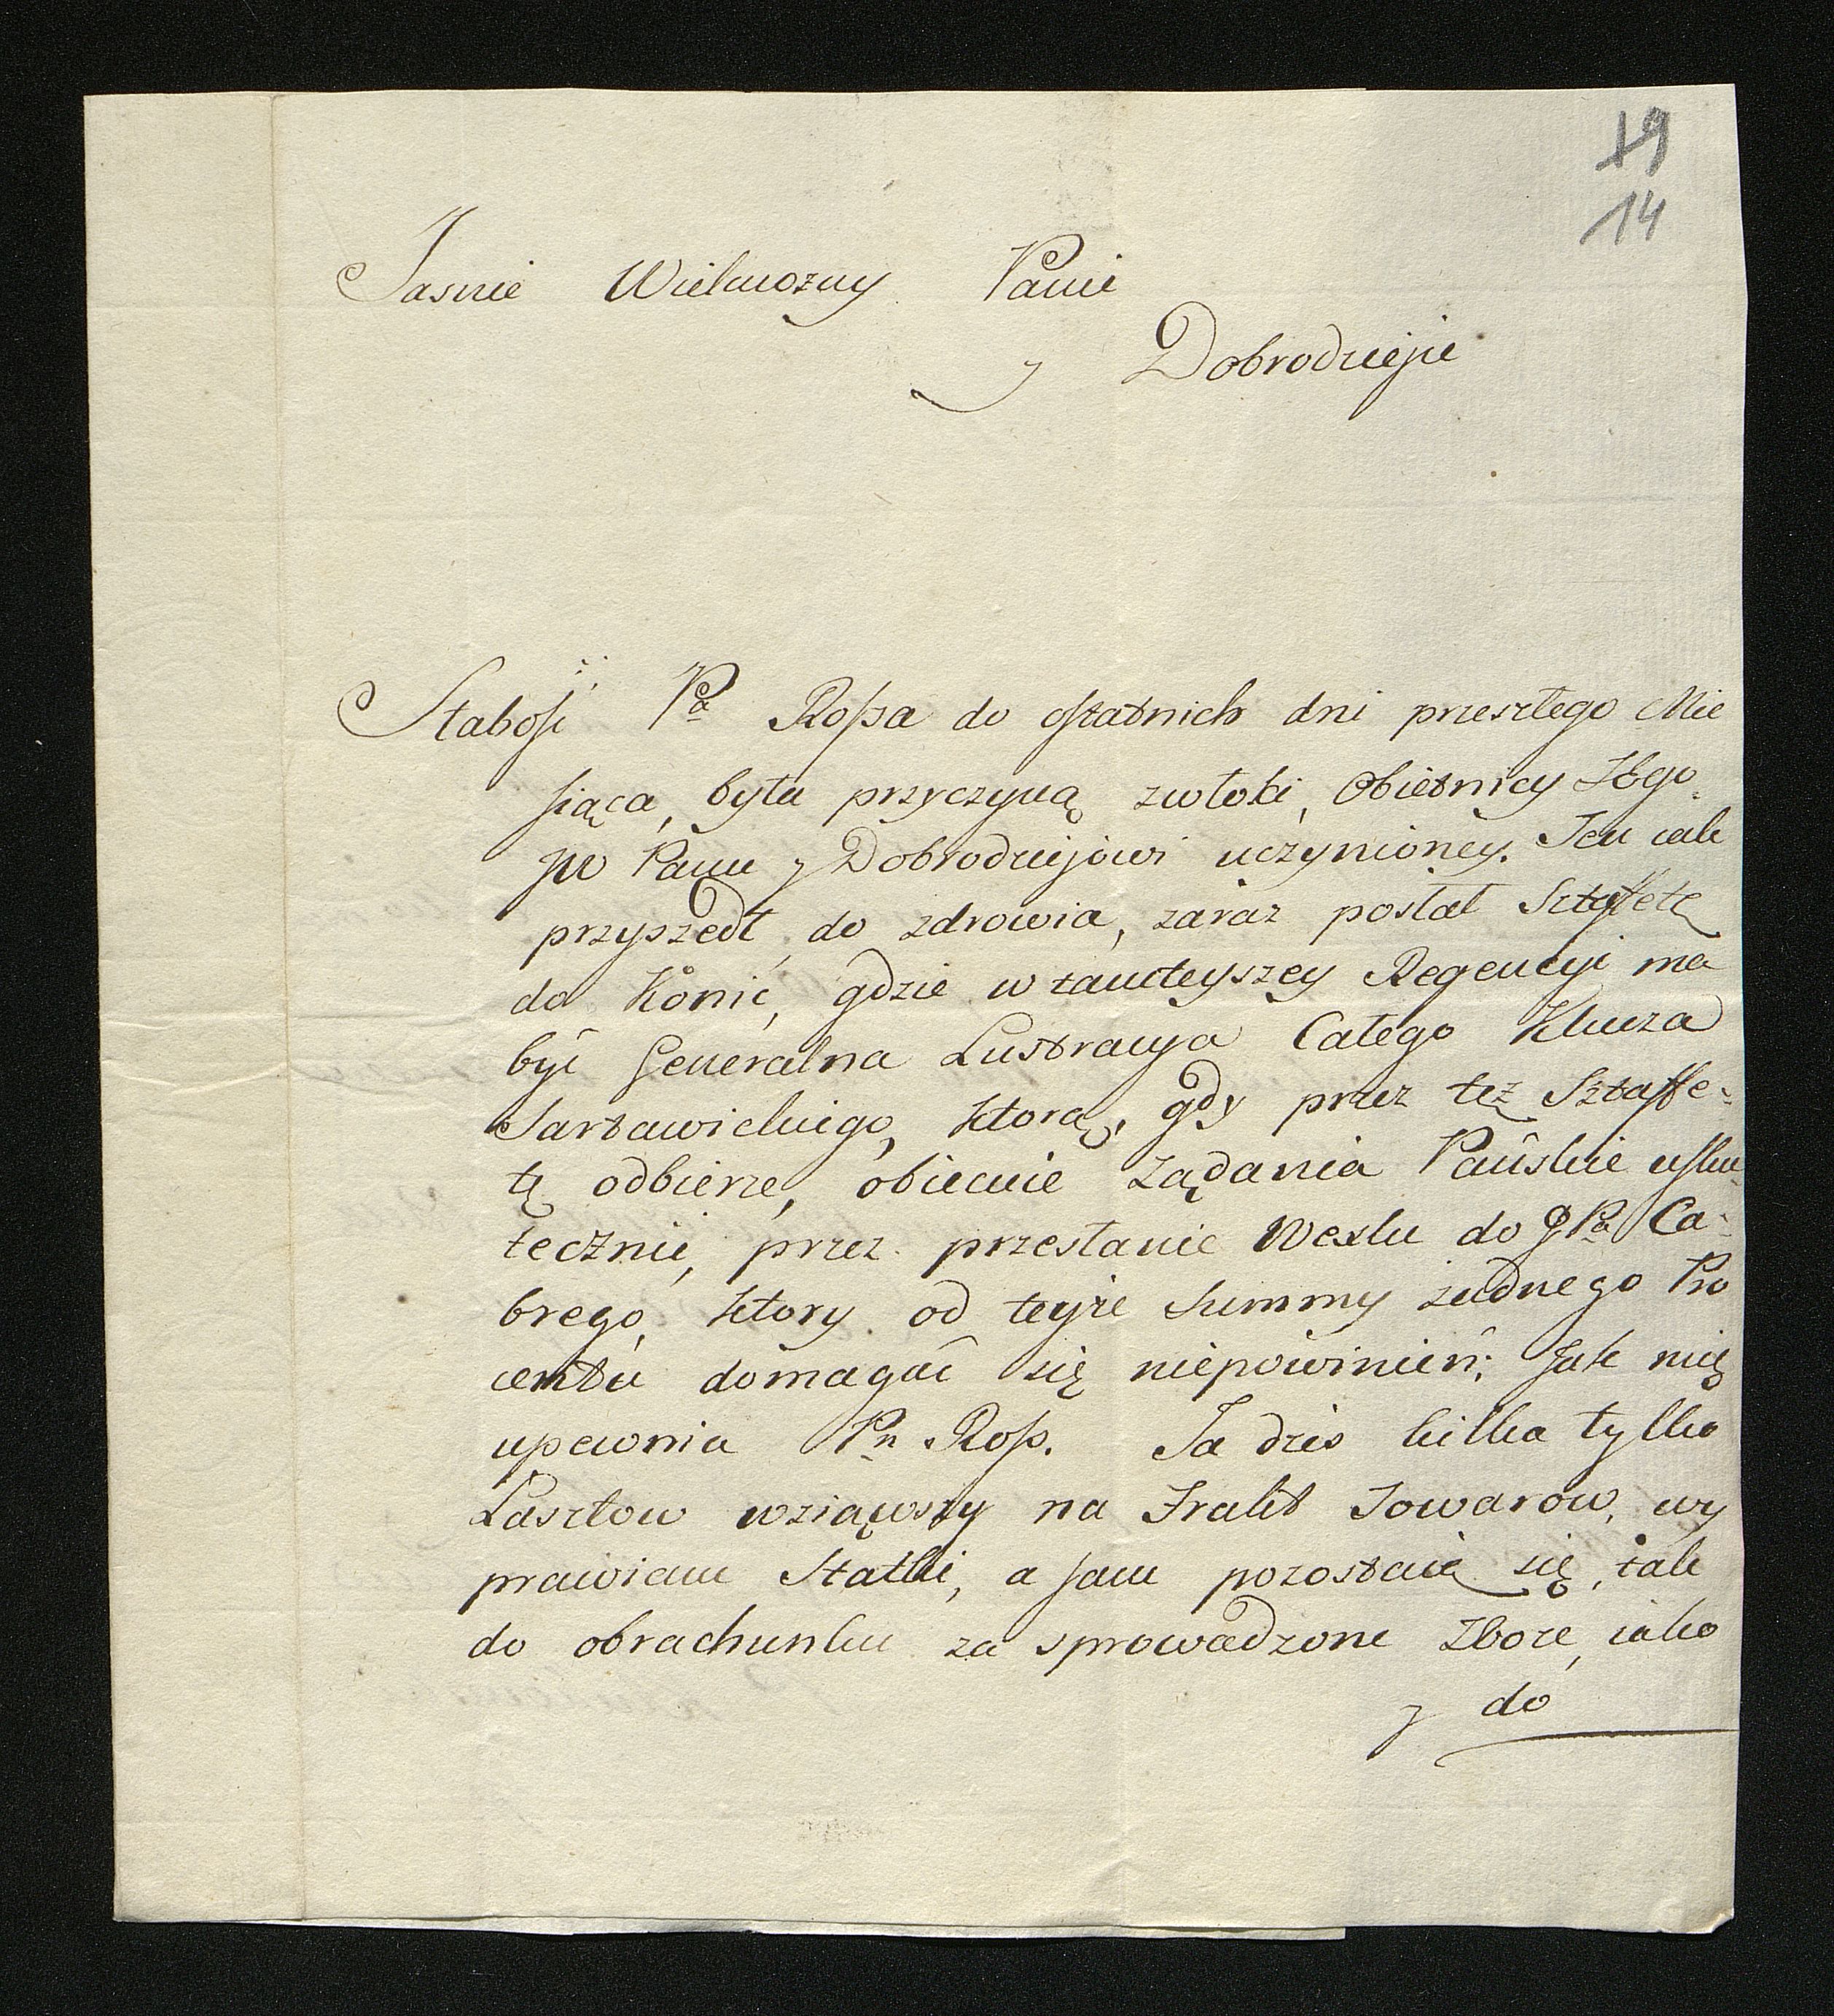 19
14
Jasnie Wielmozny Panie
y Dobrodzieju
Słabość Pa Rossa do ostatnich dni przeszłego Mie
siąca, była przyczyną zwłoki, Obietnicy JWgo
Panu y Dobrodziejowi uczynioney. Ten iak
przyszedł do zdrowia, zaraz posłał Sztaffetę
do Konic, gdzie w tamteyszey Regencyi ma
być Generalna Lustracya Całego Klucza
Sartawickiego, ktorą, gdy przez tęż Sztaffe-
tę odbierze, obiecuie żądania Pańskie usku-
tecznić, przez przesłanie Wexlu do JPa Ca-
brego, ktory od teyże Summy żadnego Pro
centu domagać się niepowinień; Jak mię
upewnia Pn Ross. Ja dzis kilka tylko
Łasztow wziąwszy na Frakt Towarow, wy
prawiam Statki, a sam pozostaię się, tak
do obrachunku za sprowadzone Zboże, iako
y do